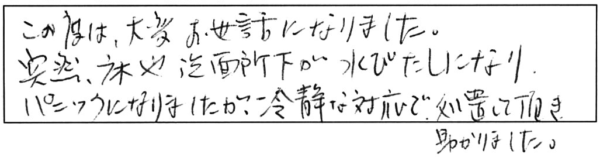 この度は、大変お世話になりました。
突然、床や洗面所下が水びたしになり、
パニックになりましたが、冷静な対応で処置して頂き
助かりました。